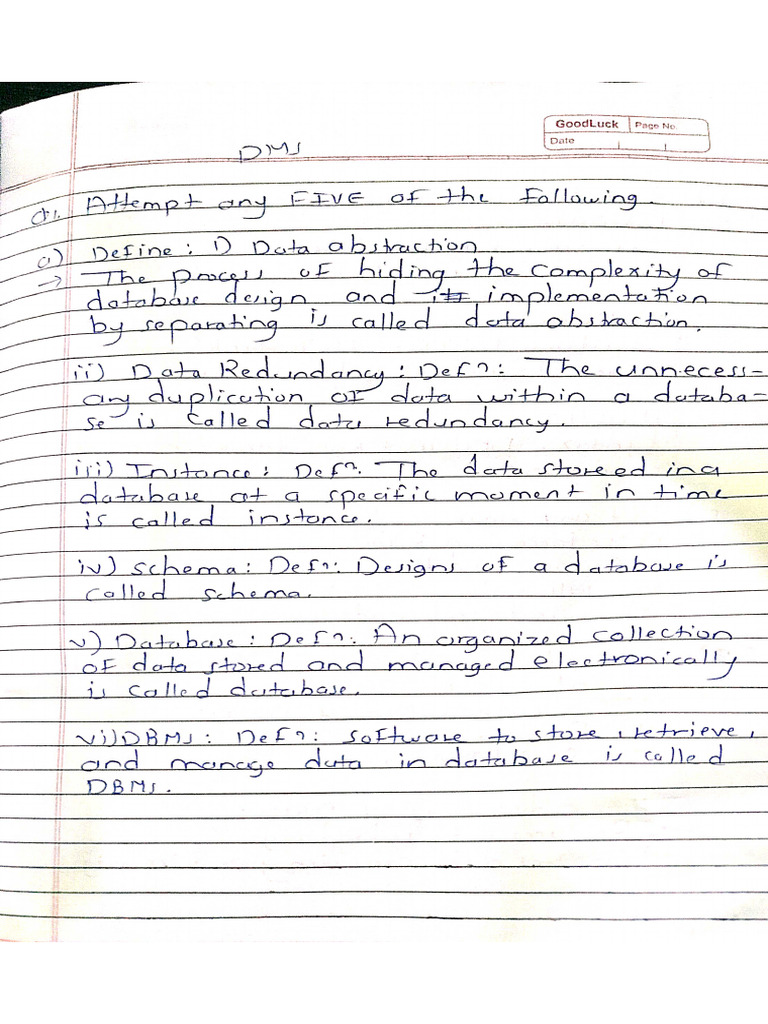 GoodLuck Page No.
Date
DMS
Q1. Attempt any FIVE of the following.
a) Define : i) Data abstraction
→ The process of hiding the complexity of
database design and implementation
by separating is called data abstraction.
ii) Data Redundancy : Defn: The unnecess-
ary duplication of data within a databa-
se is called data redundancy.
iii) Instance : Defn. The data storeed in a
database at a specific moment in time
is called instance.
iv) Schema : Defn: Designs of a database is
called schema.
v) Database : Defn: An organized collection
of data stored and managed electronically
is called database.
vi) DBMS : Defn: Software to store, retrieve,
and manage data in database is called
DBMS.